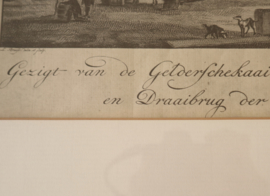 Gezigt van de Gelderschekaai
en Draaibrug der